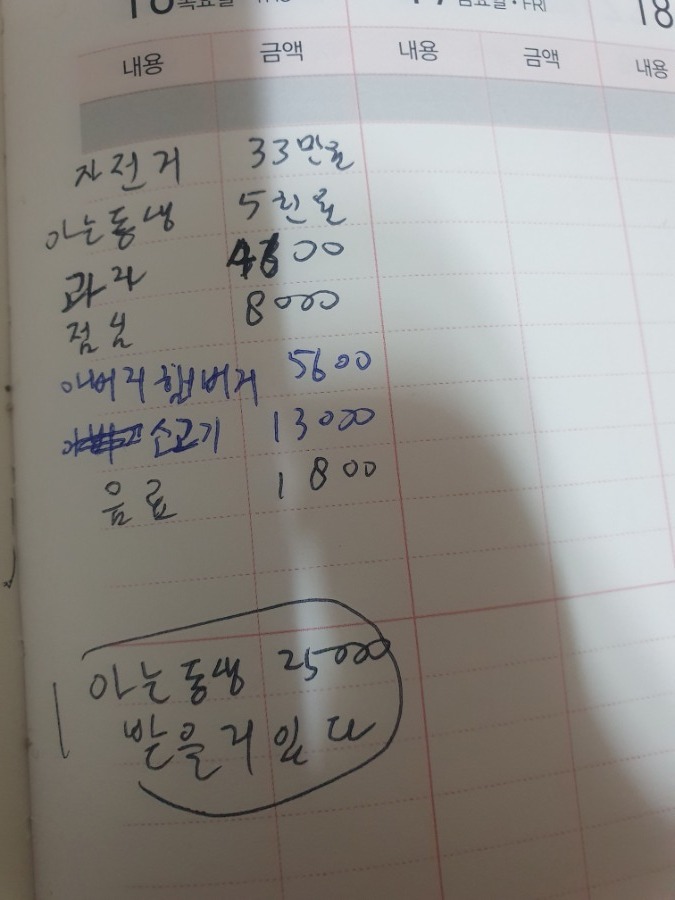 16 목요일·THU 17 금요일·FRI 18
내용 금액 내용 금액 내용
자전거 33만원
아는동생 5천원
과자 00
점심 8000
아버지햄버거 5600
소고기 13000
음료 1800
아는동생 25000
받을거있다